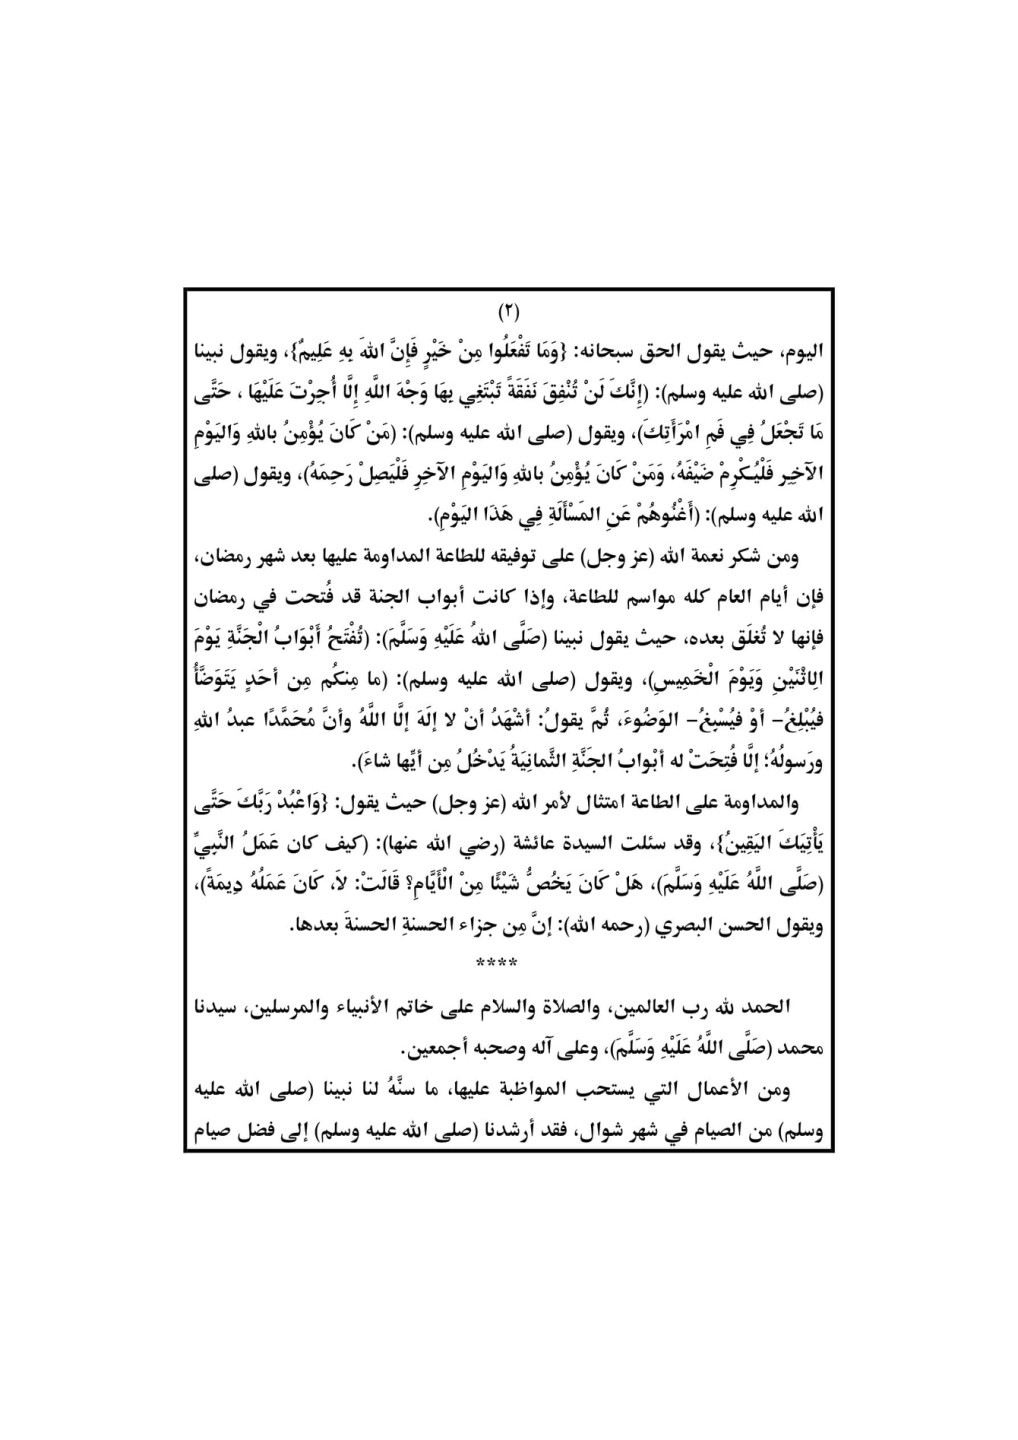 (٢)
اليوم، حيث يقول الحق سبحانه: {وَمَا تَفْعَلُوا مِنْ خَيْرٍ فَإِنَّ اللهَ بِهِ عَلِيمٌ}، ويقول نبينا
(صلى الله عليه وسلم): (إِنَّكَ لَنْ تُنْفِقَ نَفَقَةً تَبْتَغِي بِهَا وَجْهَ اللَّهِ إِلَّا أُجِرْتَ عَلَيْهَا ، حَتَّى
مَا تَجْعَلُ فِي فَمِ امْرَأَتِكَ)، ويقول (صلى الله عليه وسلم): (مَنْ كَانَ يُؤْمِنُ باللهِ وَاليَوْمِ
الآخِرِ فَلْيُكْرِمْ ضَيْفَهُ، وَمَنْ كَانَ يُؤْمِنُ باللهِ وَاليَوْمِ الآخِرِ فَلْيَصِلْ رَحِمَهُ)، ويقول (صلى
الله عليه وسلم): (أَغْنُوهُمْ عَنِ المَسْأَلَةِ فِي هَذَا اليَوْمِ).
ومن شكر نعمة الله (عز وجل) على توفيقه للطاعة المداومة عليها بعد شهر رمضان،
فإن أيام العام كله مواسم للطاعة، وإذا كانت أبواب الجنة قد فُتحت في رمضان
فإنها لا تُغلَق بعده، حيث يقول نبينا (صَلَّى اللهُ عَلَيْهِ وَسَلَّمَ): (تُفْتَحُ أَبْوَابُ الْجَنَّةِ يَوْمَ
الِاثْنَيْنِ وَيَوْمَ الْخَمِيسِ)، ويقول (صلى الله عليه وسلم): (ما مِنكُم مِن أحَدٍ يَتَوَضَّأُ
فيُبْلِغُ- أوْ فيُسْبِغُ- الوَضُوءَ، ثُمَّ يقولُ: أشْهَدُ أنْ لا إلَهَ إلَّا اللَّهُ وأنَّ مُحَمَّدًا عبدُ اللهِ
ورَسولُهُ؛ إلَّا فُتِحَتْ له أبْوابُ الجَنَّةِ الثَّمانِيَةُ يَدْخُلُ مِن أيِّها شاءَ).
والمداومة على الطاعة امتثال لأمر الله (عز وجل) حيث يقول: {وَاعْبُدْ رَبَّكَ حَتَّى
يَأْتِيَكَ اليَقِينُ}، وقد سئلت السيدة عائشة (رضي الله عنها): (كيف كان عَمَلُ النَّبِيِّ
(صَلَّى اللَّهُ عَلَيْهِ وَسَلَّمَ)، هَلْ كَانَ يَخُصُّ شَيْئًا مِنْ الْأَيَّامِ؟ قَالَتْ: لاَ، كَانَ عَمَلُهُ دِيمَةً)،
ويقول الحسن البصري (رحمه الله): إنَّ مِن جزاء الحسنةِ الحسنةَ بعدها.
****
الحمد لله رب العالمين، والصلاة والسلام على خاتم الأنبياء والمرسلين، سيدنا
محمد (صَلَّى اللَّهُ عَلَيْهِ وَسَلَّمَ)، وعلى آله وصحبه أجمعين.
ومن الأعمال التي يستحب المواظبة عليها، ما سنَّهُ لنا نبينا (صلى الله عليه
وسلم) من الصيام في شهر شوال، فقد أرشدنا (صلى الله عليه وسلم) إلى فضل صيام